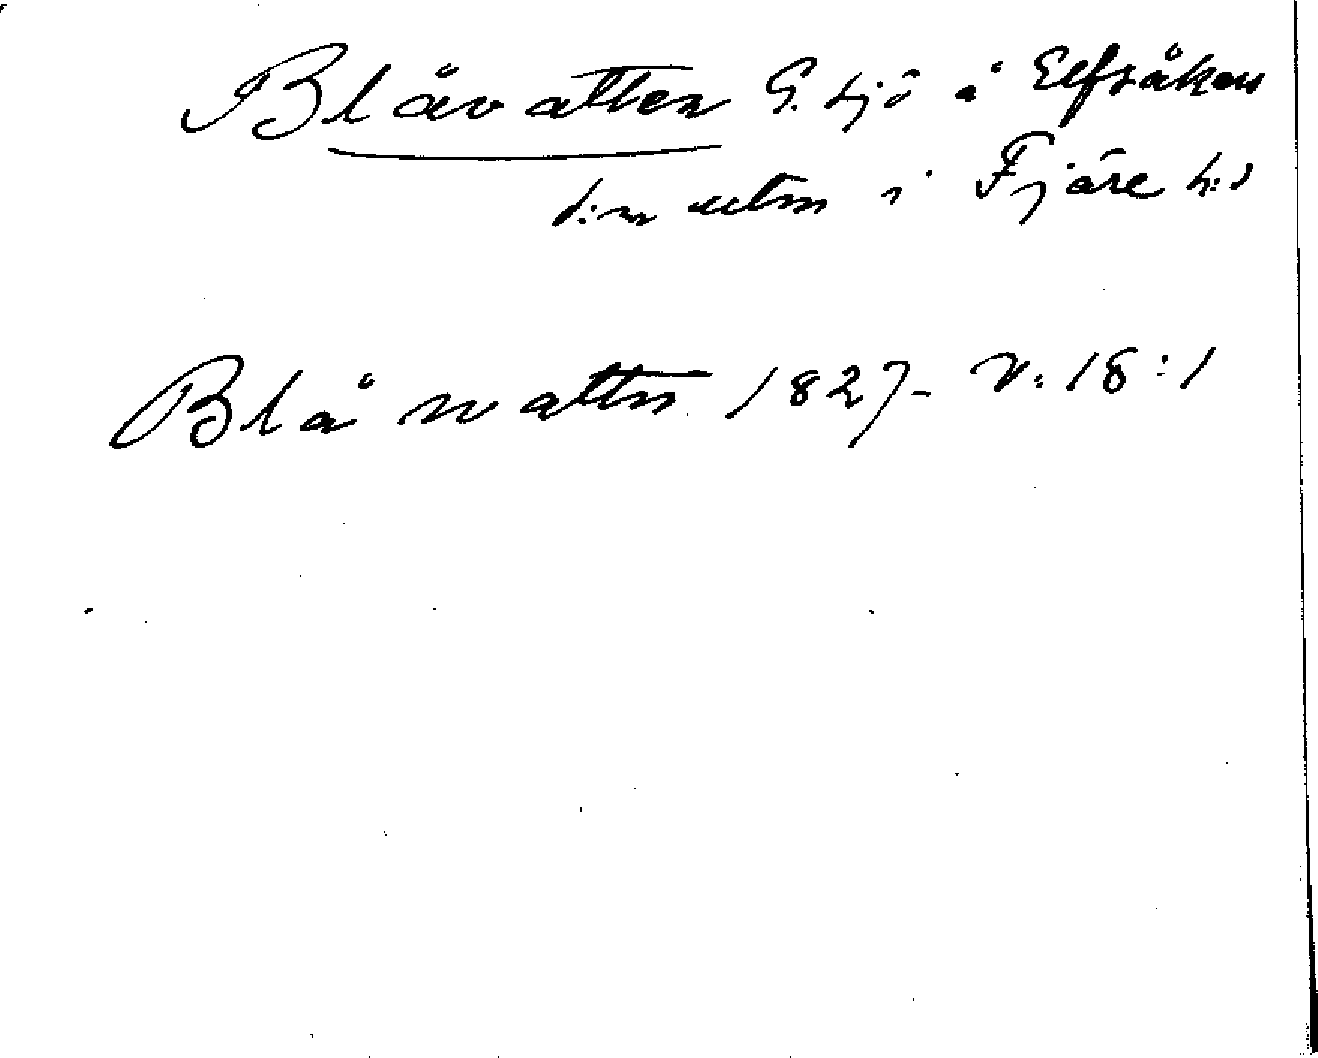 Blåvatten G. sjö å Elfsåken
s:n utm i Fjäre h:d
Blå wattn 1827- V. 18:1